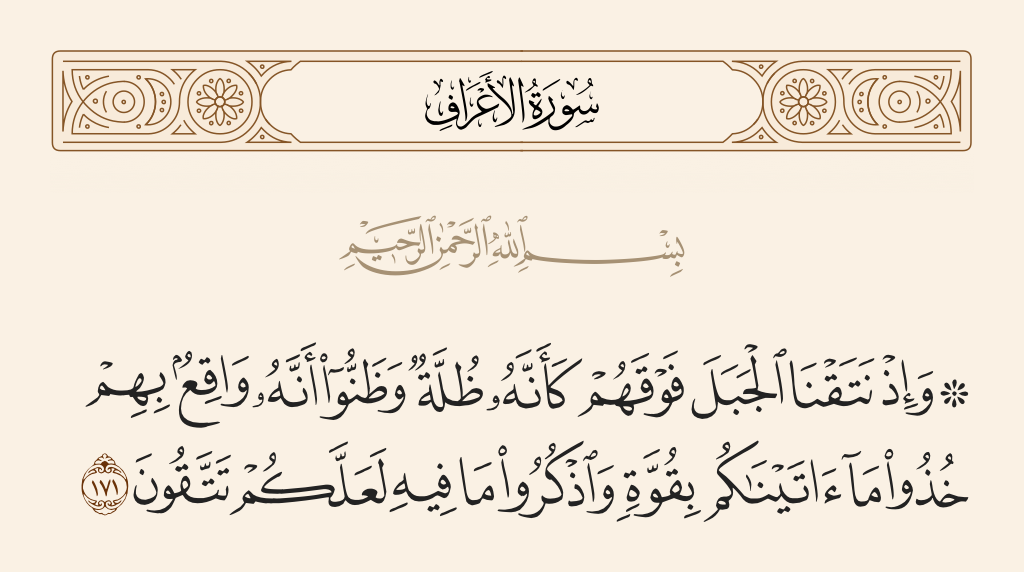 سُورَةُ الأَعْرَافِ
بِسْمِ ٱللَّهِ ٱلرَّحْمَٰنِ ٱلرَّحِيمِ
۞ وَإِذْ نَتَقْنَا ٱلْجَبَلَ فَوْقَهُمْ كَأَنَّهُۥ ظُلَّةٌۭ وَظَنُّوٓا۟ أَنَّهُۥ وَاقِعٌۢ بِهِمْ
خُذُوا۟ مَآ ءَاتَيْنَٰكُم بِقُوَّةٍۢ وَٱذْكُرُوا۟ مَا فِيهِ لَعَلَّكُمْ تَتَّقُونَ ١٧١